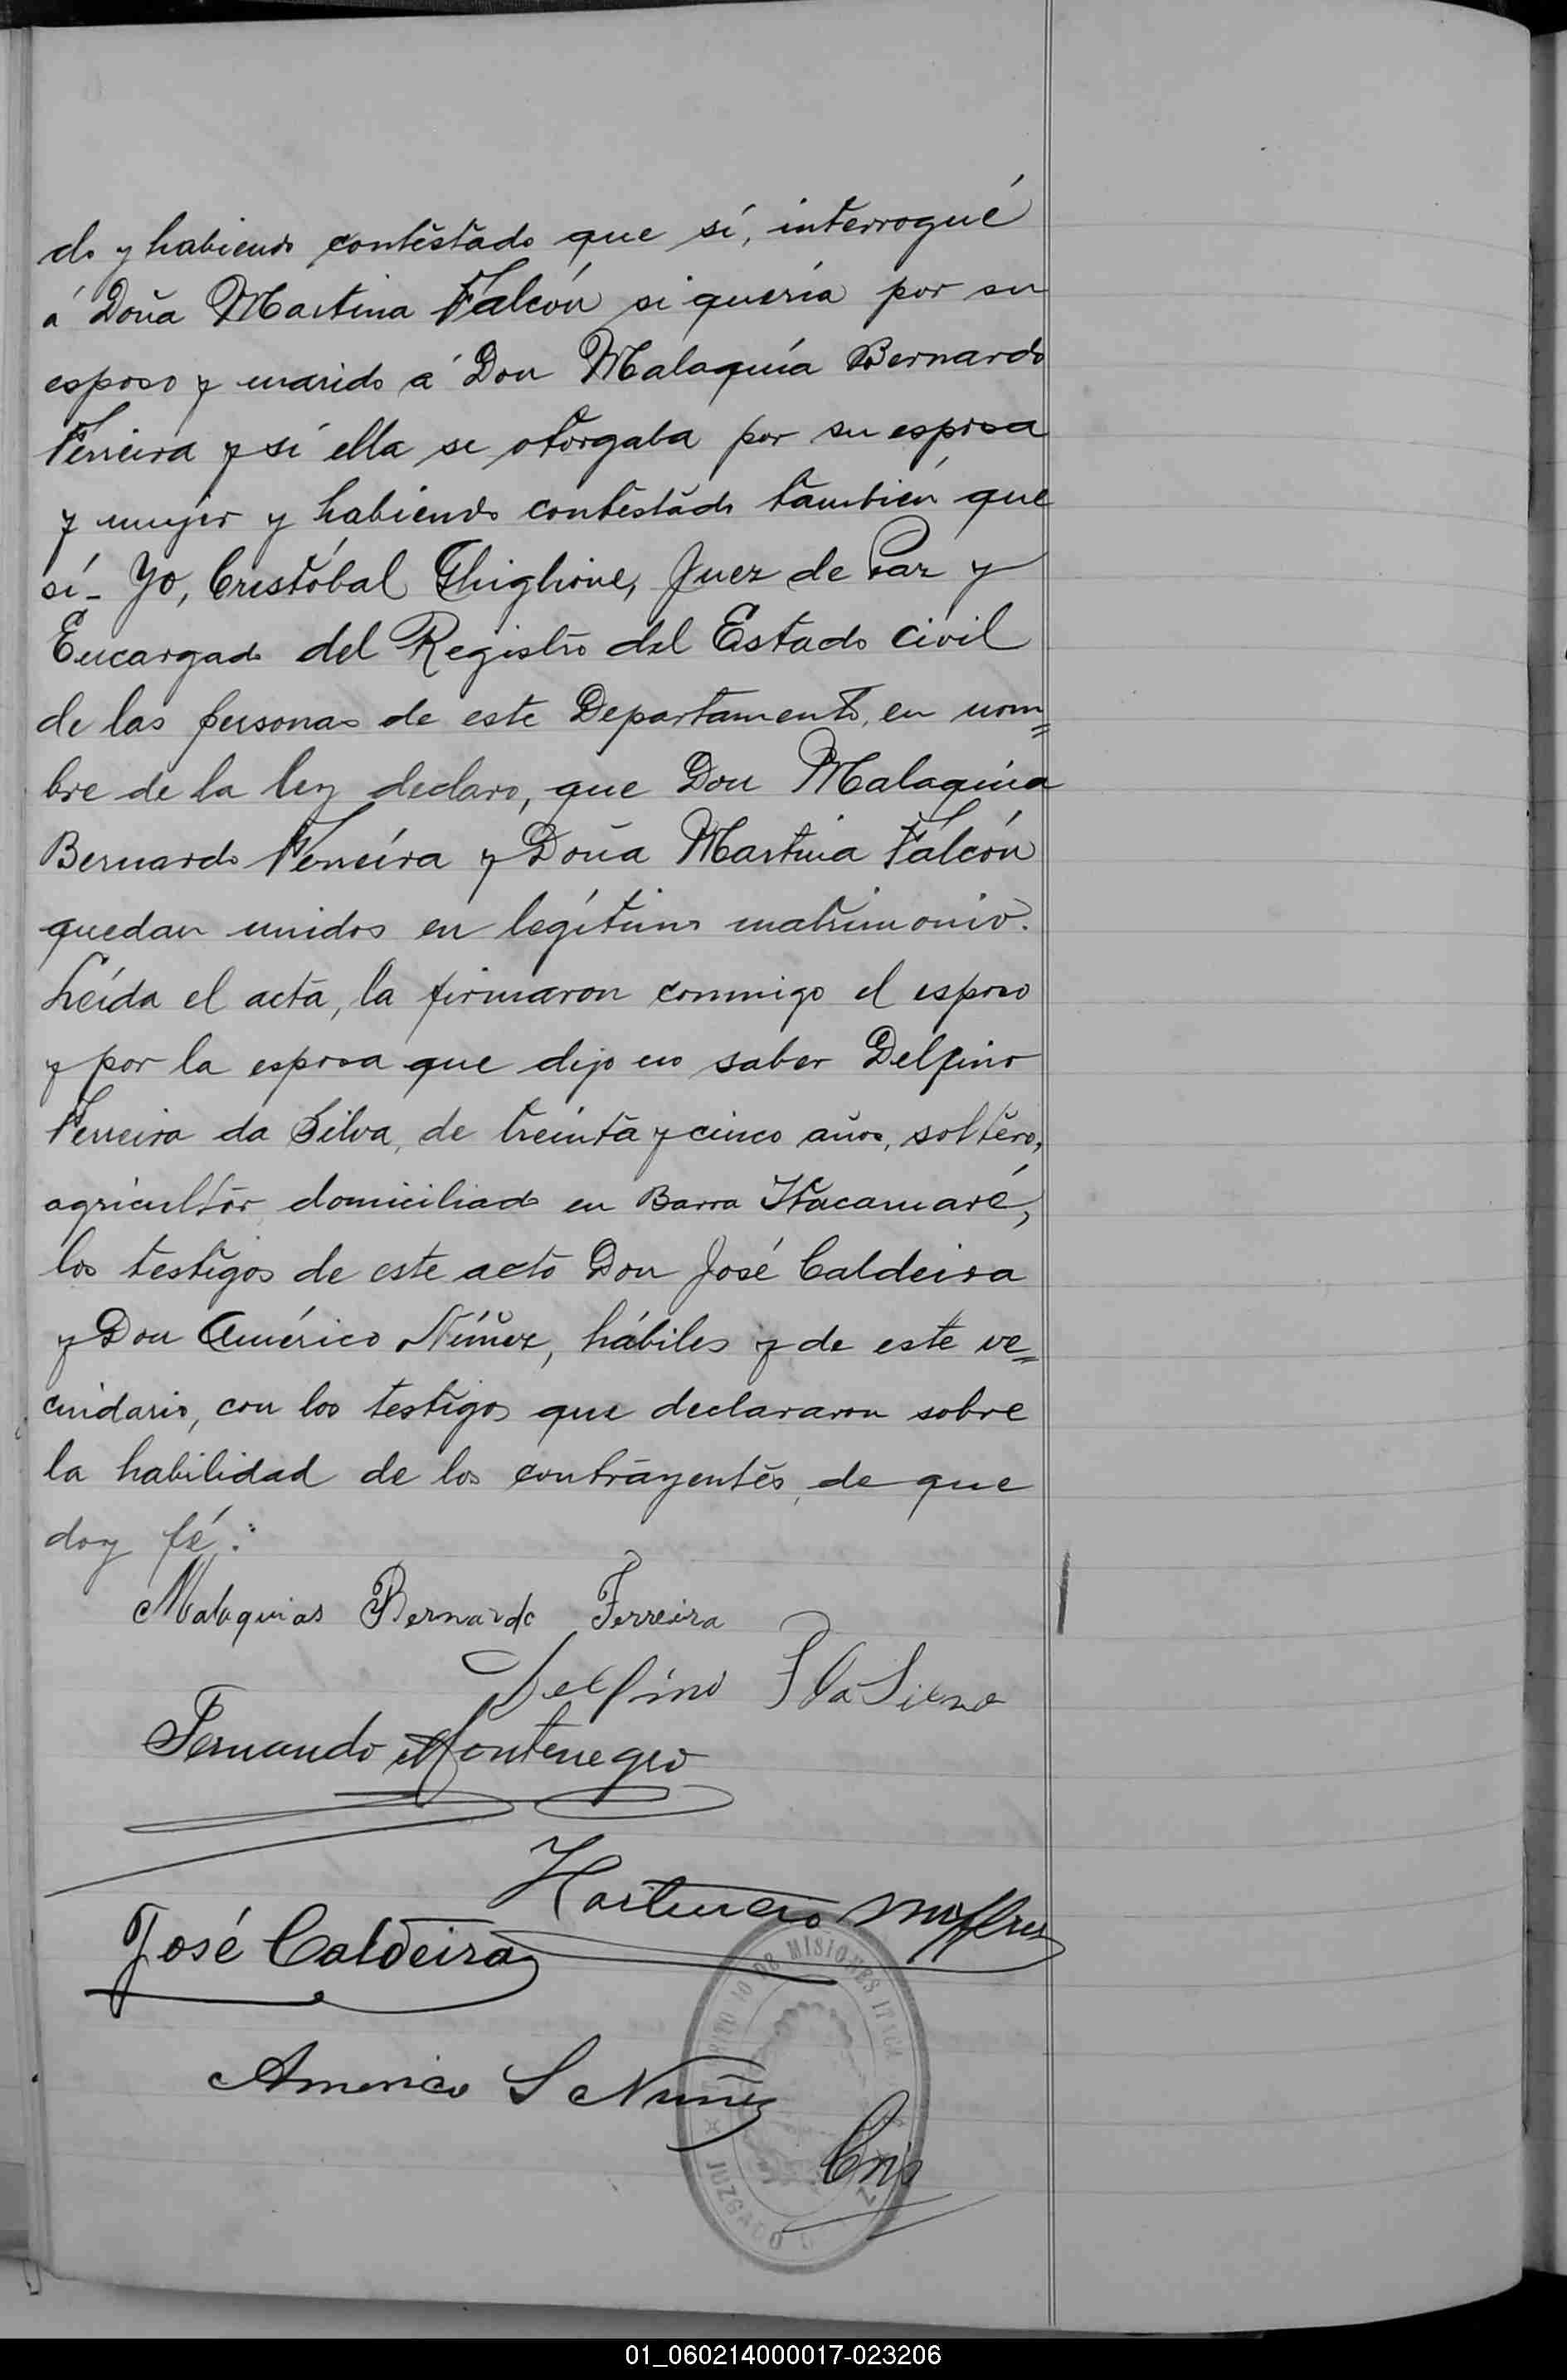 do y habiendo contestado que sí, interrogué
á Doña Martina Falcón si quería por su
esposo y marido á Don Malaquía Bernardo
Ferreira y si ella se otorgaba por su esposa
y mujer y habiendo contestado también que
sí_ Yo, Cristóbal Ghiglione, Juez de Paz y
Encargado del Registro del Estado Civil
de las personas de este Departamento, en nom=
bre de la ley declaro, que Don Malaquía
Bernardo Ferreira y Doña Martina Falcón
quedan unidos en legítimo matrimonio.
Leída el acta, la firmaron conmigo el esposo
y por la esposa que dijo no saber Delfino
Ferreira da Silva, de treinta y cinco años, soltero,
agricultor domiciliado en Barra Itacamaré,
los testigos de este acto Don José Caldeira
y Don Américo Núñez, hábiles y de este ve=
cindario, con los testigos que declararon sobre
la habilidad de los contrayentes, de que
doy fé:
Malaquias Bernardo Ferreira
Delfino F da Silva
Fernando Montenegro
José Caldeira
DE MISIONES
Americo S Nuñez
Cris
JUZGADO
01_060214000017-023206